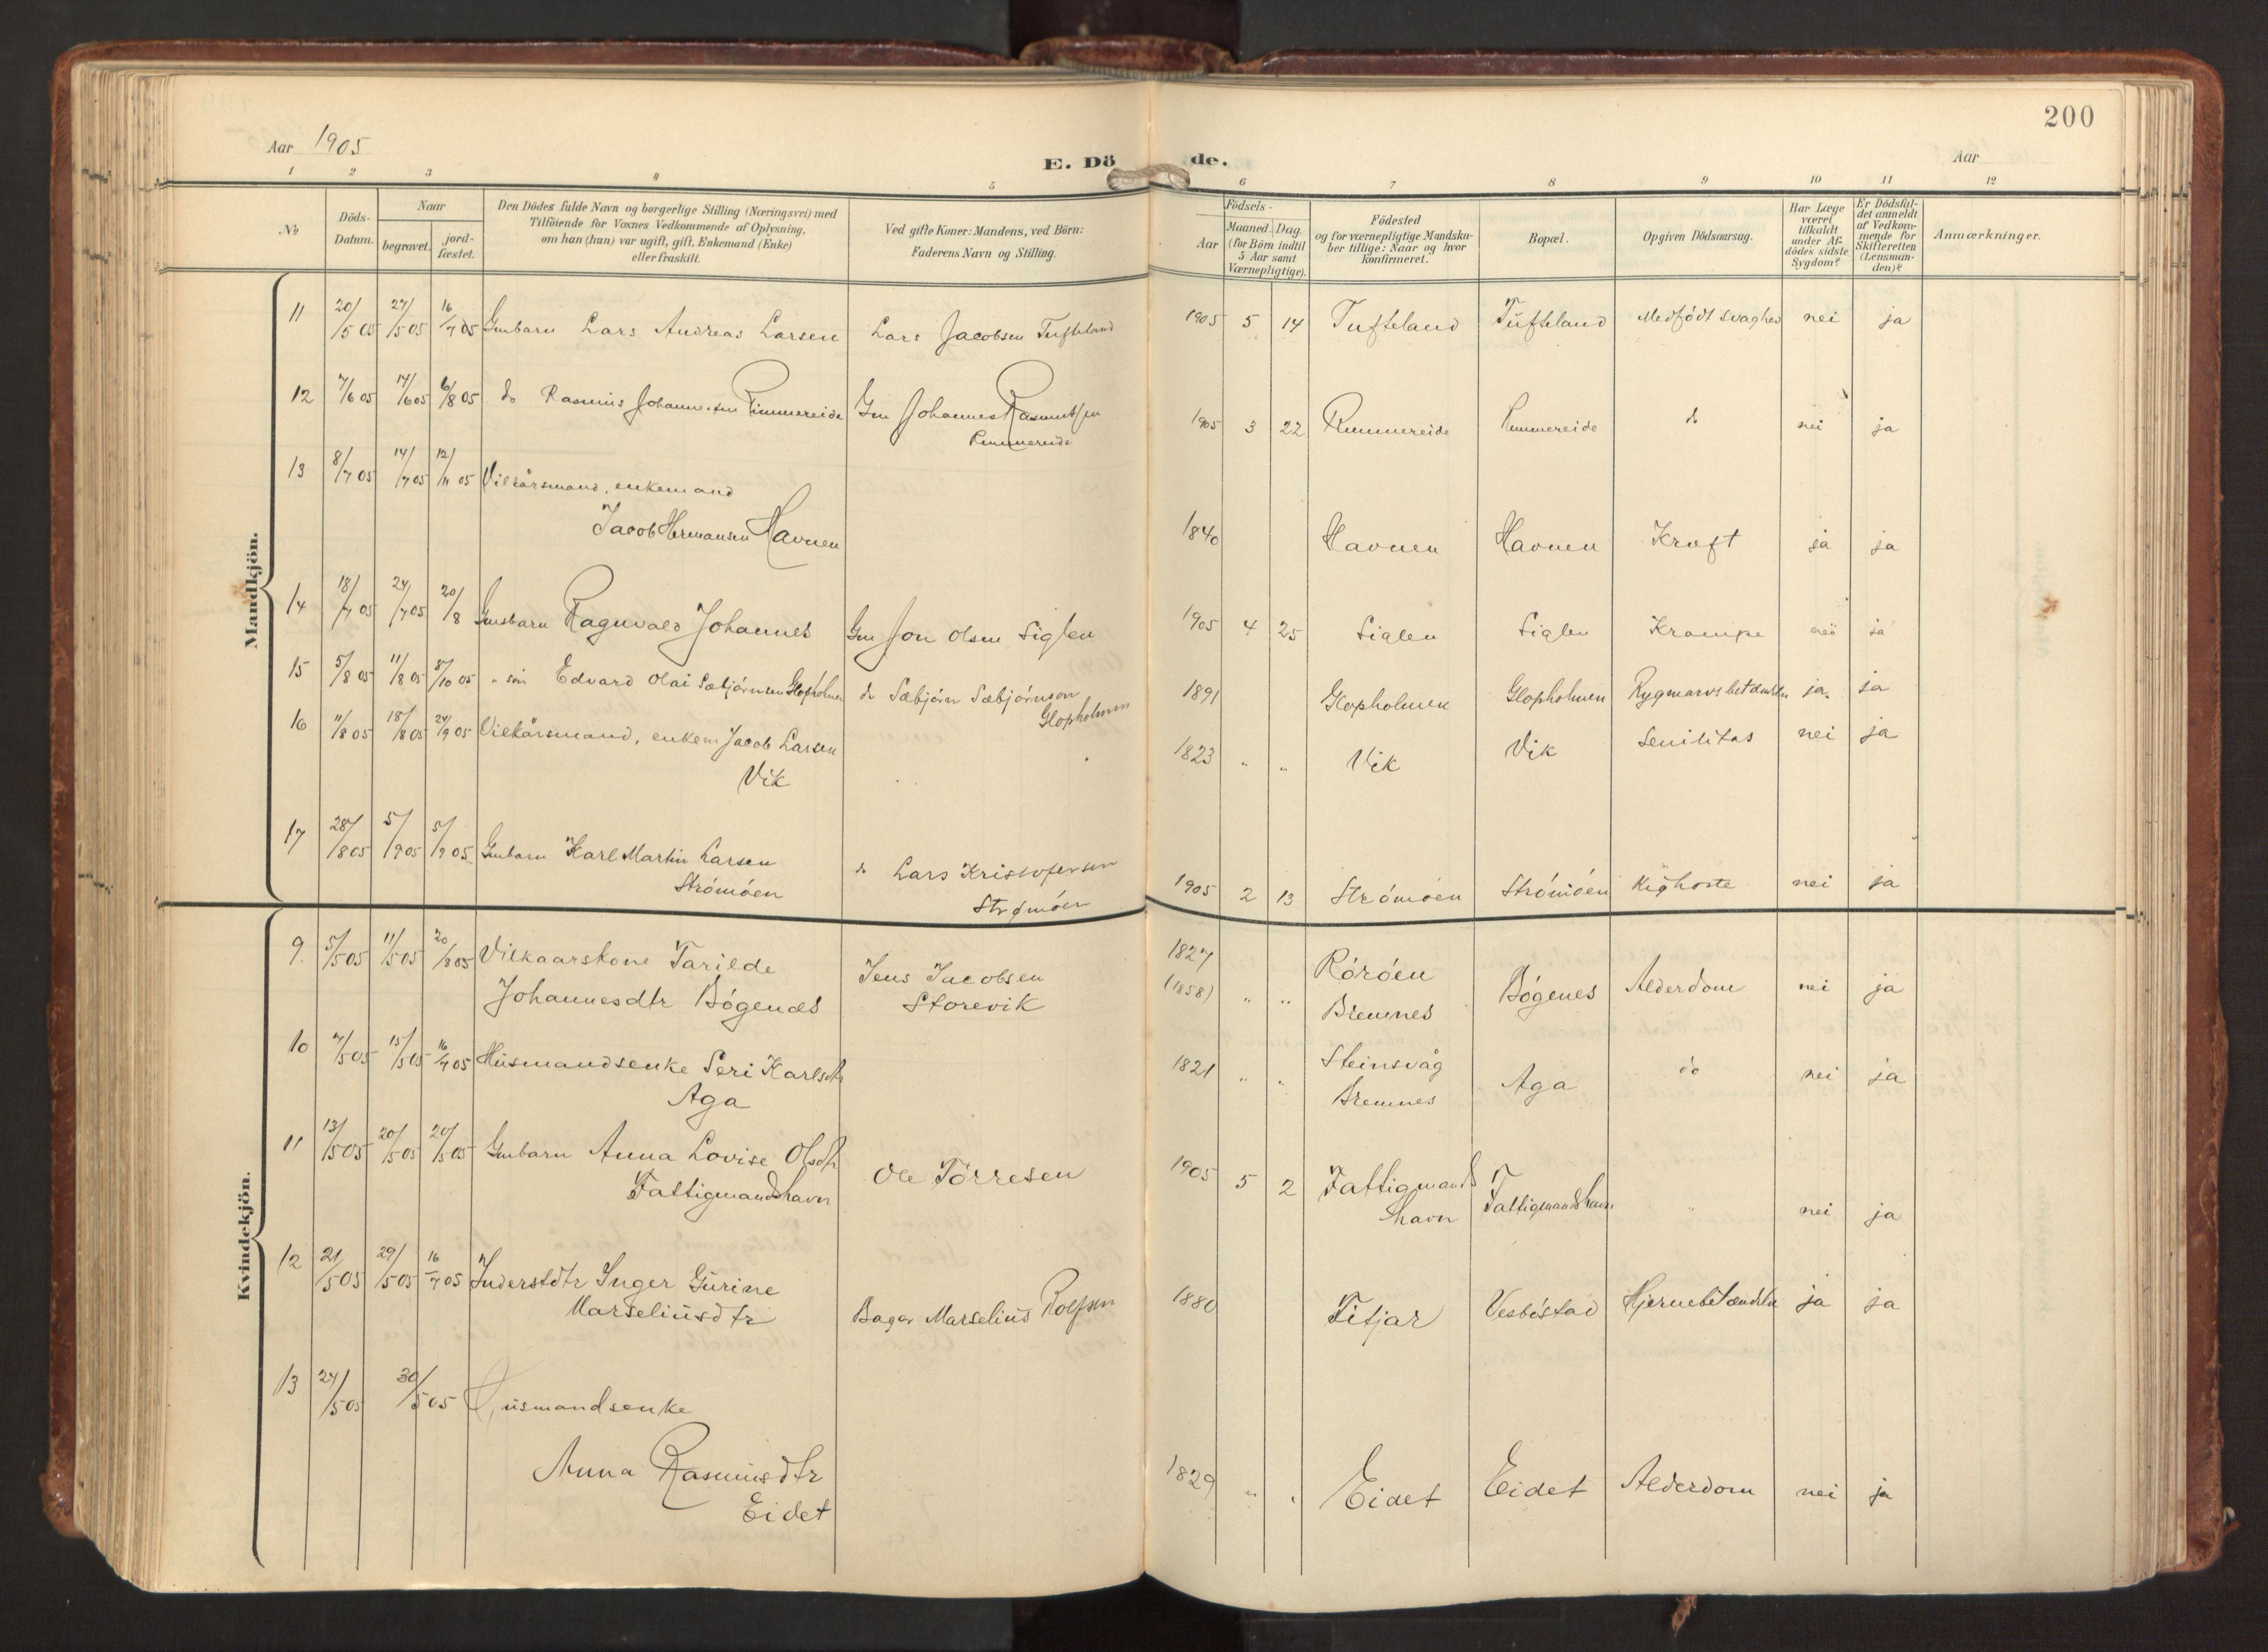 200
Aar 1905
E. Döde.
Aar
1 2 3 4 5 6 7 8 9 10 11 12
No
Döds-Datum.
Naar
begravet.
jord-fæstet.
Den Dödes fulde Navn og borgerlige Stilling (Næringsvei) med
Tilföiende for Voxnes Vedkommende af Oplysning,
om han (hun) var ugift, gift, Enkemand (Enke)
eller fraskilt.
Ved gifte Koner: Mandens, ved Börn:
Faderens Navn og Stilling.
Födsels-
Aar
Maaned. Dag.
(for Börn indtil
5 Aar samt
Værnepligtige).
Födested
og for værnepligtige Mandska-
ber tillige: Naar og hvor
konfirmeret.
Bopæl.
Opgiven Dödsaarsag.
Har Læge
været
tilkaldt
under Af-
dödes sidste
Sygdom?
Er Dödsfal-
det anmeldt
af Vedkom-
mende for
Skifteretten
(Lensman-
den)?
Anmærkninger.
Mandkjön.
11 20/5 05 27/5 05 16/7 05 Gmbarn Lars Andreas Larsen Lars Jacobsen Tufteland 1905 5 14 Tufteland Tufteland Medfödt svaghed nei ja
12 7/6 05 14/6 05 6/8 05 do Rasmus Johannessen Rimmereide Gm Johannes Rasmussen
Rimmereide 1905 3 22 Rimmereide Rimmereide do nei ja
13 8/7 05 14/7 05 12/11 05 Vilkårsmand, enkemand
Jacob Hermansen Havnen 1840 Havnen Havnen Kræft ja ja
14 18/7 05 24/7 05 20/8 Gmsbarn Ragnvald Johannes Gm Jon Olsen Siglen 1905 4 25 Siglen Siglen Krampe nei ja
15 5/8 05 11/8 05 8/10 05 " søn Edvard Olai Sæbjörnsen Glopholmen do Sæbjörn Sæbjörnson
Glopholmen 1891 Glopholmen Glopholmen Rygmarvsbetændelse ja. ja
16 11/8 05 18/8 05 24/9 05 Vilkårsmand, enkem Jacob Larsen
Vik 1823 " " Vik Vik Senilitas nei ja
17 28/8 05 5/9 05 5/9 05 Gmbarn Karl Martin Larsen
Strömöen do Lars Kristofersen
Strømöen 1905 2 13 Strömöen Strömöen Kighoste nei ja
Kvindekjön.
9. 5/5 05 11/5 05 20/8 05 Vilkaarskone Tarilde
Johannesdtr Bögenes Jens Jacobsen
Storevik 1827
(1858) " " Röröen
Bremnes Bögenes Alderdom nei ja
10 7/5 05 15/5 05 16/7 05 Husmandsenke Seri Karlsdtr
Aga 1821 " " Steinsvåg
Bremnes Aga do nei ja
11 13/5 05 20/5 05 20/5 05 Gmbarn Anna Lovise Olsdtr
Fattigmandshavn Ole Törresen 1905 5 2 Fattigmands
havn Fattigmandshavn " nei ja
12 21/5 05 29/5 05 16/7 05 Inderstdtr Inger Gurine
Marseliusdtr Bager Marselius Rolfsen 1880 Fitjar Vesböstad Hjernebetændelse ja ja
13 24/5 05 30/5 05 Husmandsenke
Anna Rasmusdtr
Eidet 1829 " " Eidet Eidet Alderdom nei ja